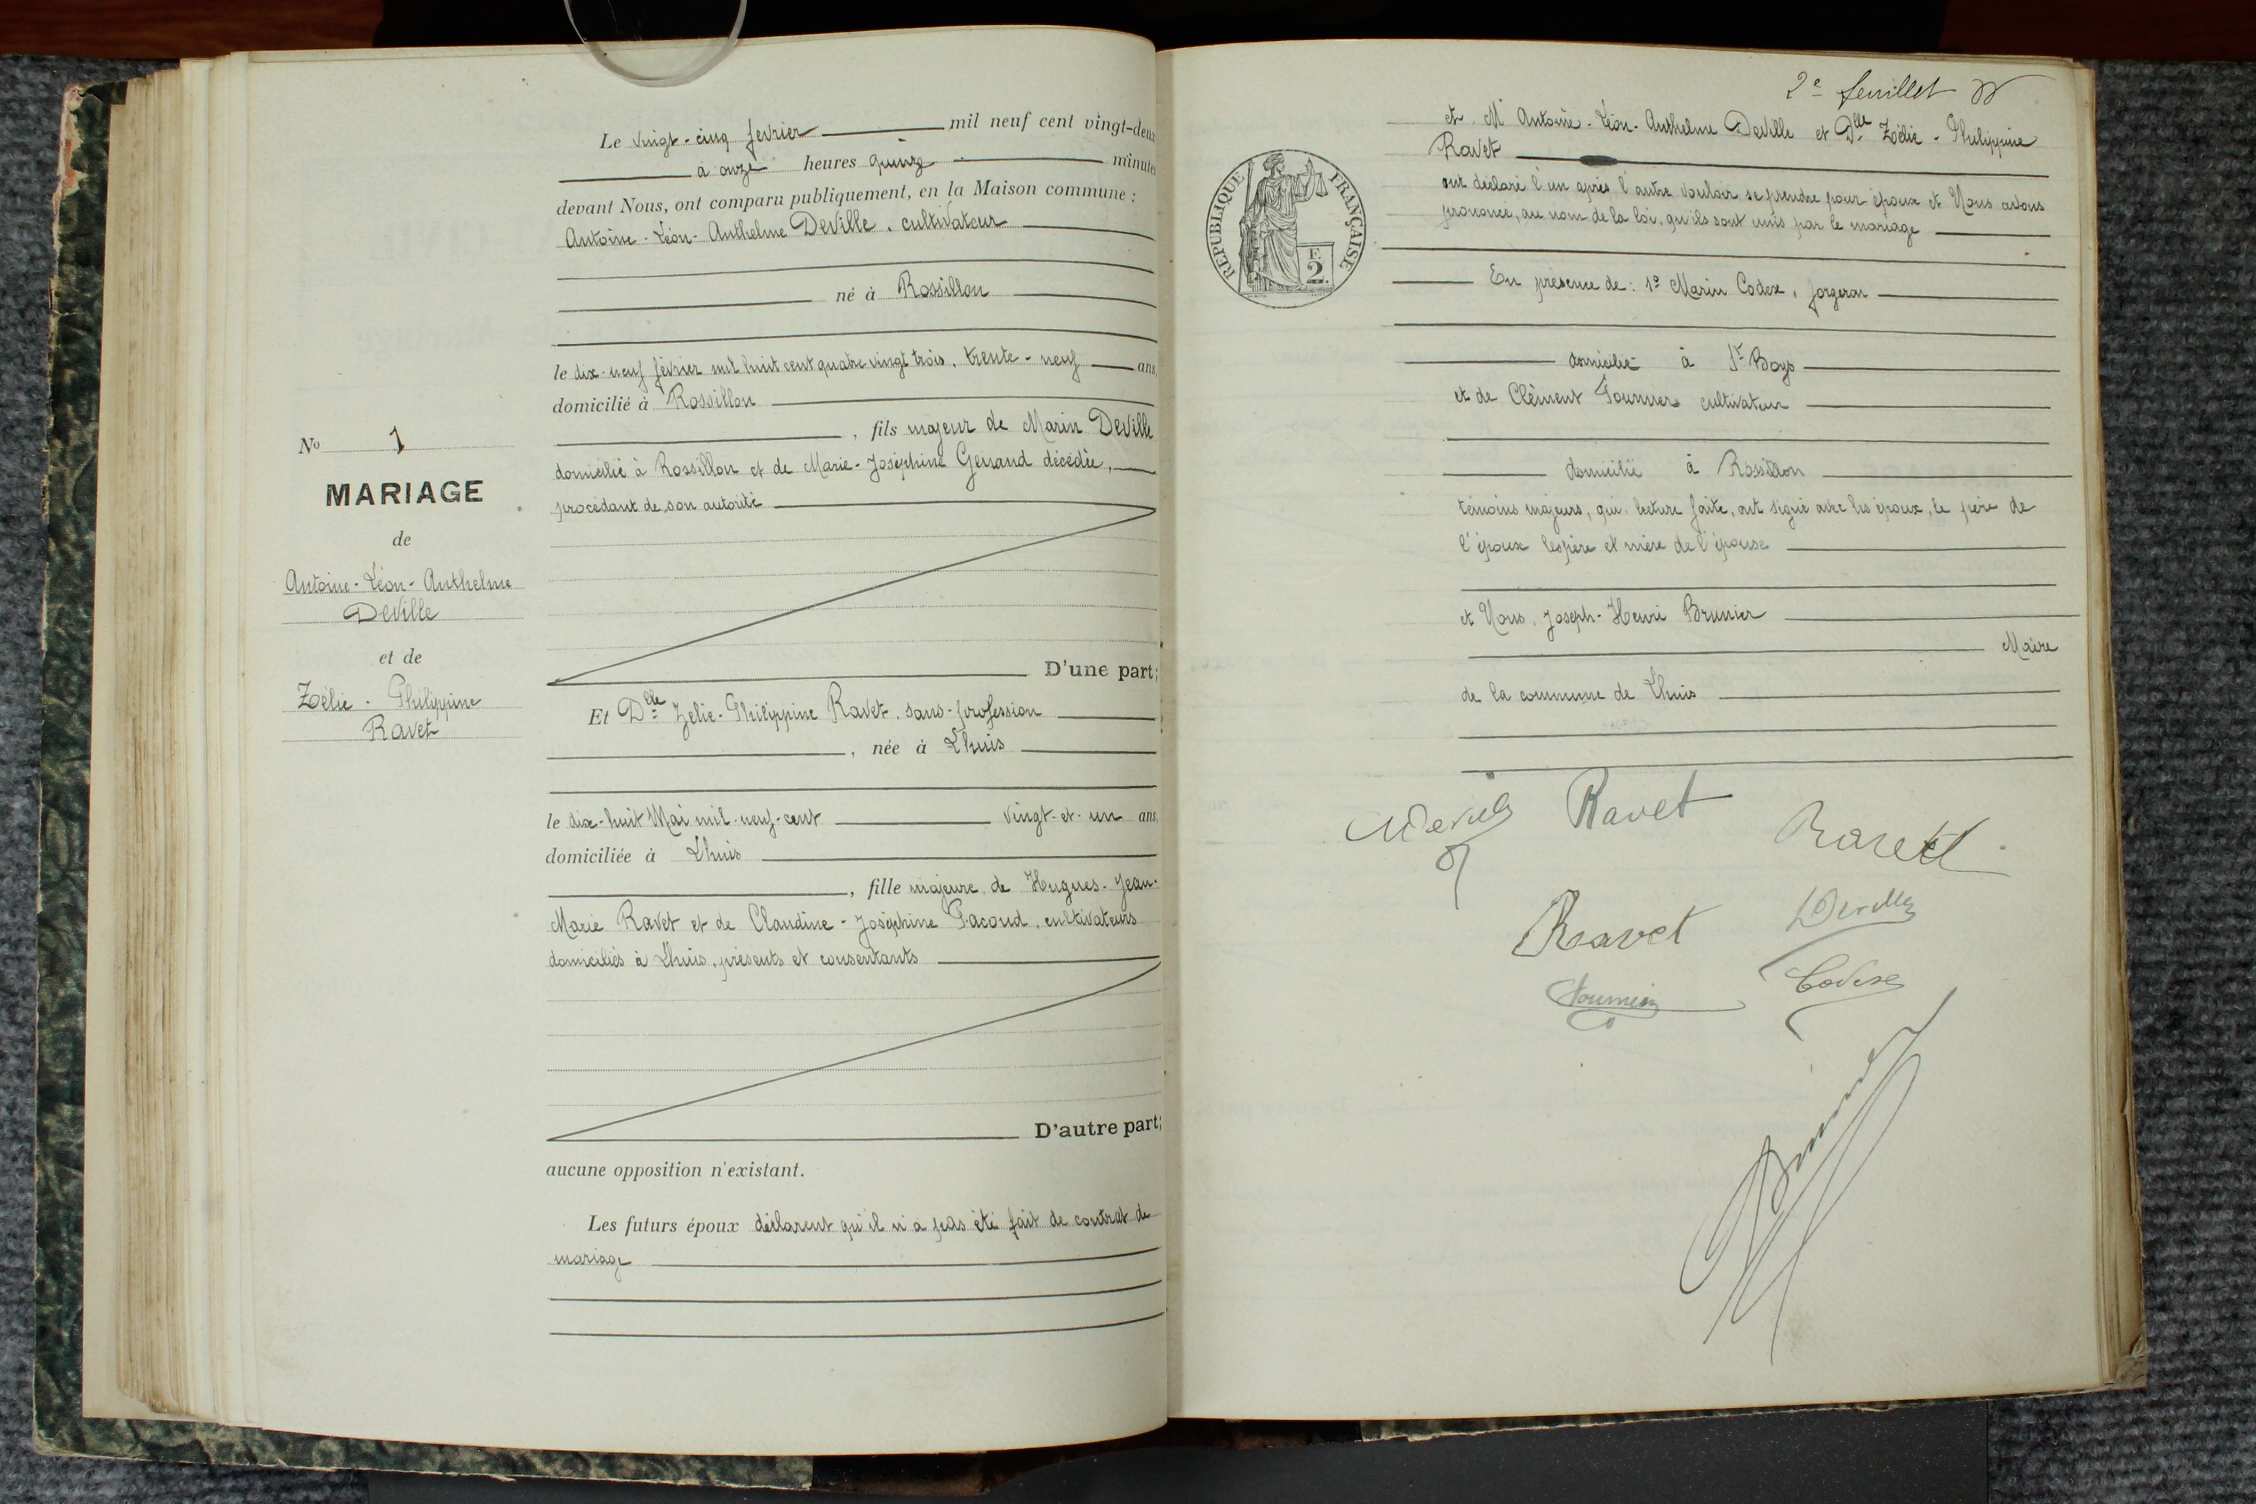 Le vingt-cinq février mil neuf cent vingt-deux
à onze heures quinze minutes
devant Nous, ont comparu publiquement, en la Maison commune :
Antoine-Léon-Anthelme Deville, cultivateur
né à Rossillon
le dix-neuf février mil huit cent quatre vingt trois, trente-neuf ans,
domicilié à Rossillon
, fils majeur de Marin Deville
domicilié à Rossillon et de Marie-Joséphine Genand décédée,
procédant de son autorité
D'une part;
Et Dlle Zélie-Philippine Ravet, sans-profession
, née à Lhuis
le dix-huit Mai mil-neuf-cent vingt-et-un ans,
domiciliée à Lhuis
, fille majeure de Hugues-Jean-
Marie Ravet et de Claudine-Joséphine Gacoud, cultivateurs
domiciliés à Lhuis, présents et consentants
D'autre part;
aucune opposition n'existant.
Les futurs époux déclarent qu'il n'a pas été fait de contrat de
mariage
No 1
MARIAGE
de
Antoine-Léon-Anthelme
Deville
et de
Zélie-Philippine
Ravet
2e feuillet
et M Antoine-Léon-Anthelme Deville et Dlle Zélie-Philippine
Ravet
ont déclaré l'un après l'autre vouloir se prendre pour époux et Nous avons
prononcé, au nom de la loi, qu'ils sont unis par le mariage
RÉPUBLIQUE FRANÇAISE
F.
2
En présence de: 1° Marin Codex, forgeron
domicilié à St Boys
et de Clément Fournier cultivateur
domicilié à Rossillon
témoins majeurs, qui, lecture faite, ont signé avec les époux, le père de
l'époux les père et mère de l'épouse
et Nous, Joseph-Henri Brunier
Maire
de la commune de Lhuis
Deville Ravet
Ravet
Ravet
Deville
Fournier
Codex
Brunier